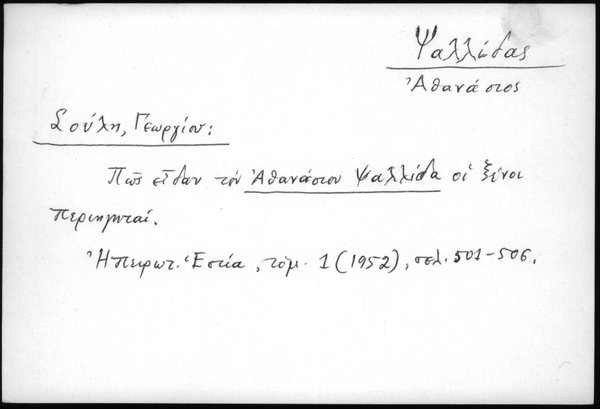 Ψαλλίδας
Ἀθανάσιος
Σούλη, Γεωργίου:
Πῶς εἶδαν τὸν Ἀθανάσιον Ψαλλίδα οἱ ξένοι
περιηγηταί.
Ἠπειρωτ. Ἑστία, τόμ. 1 (1952), σελ. 501-506.